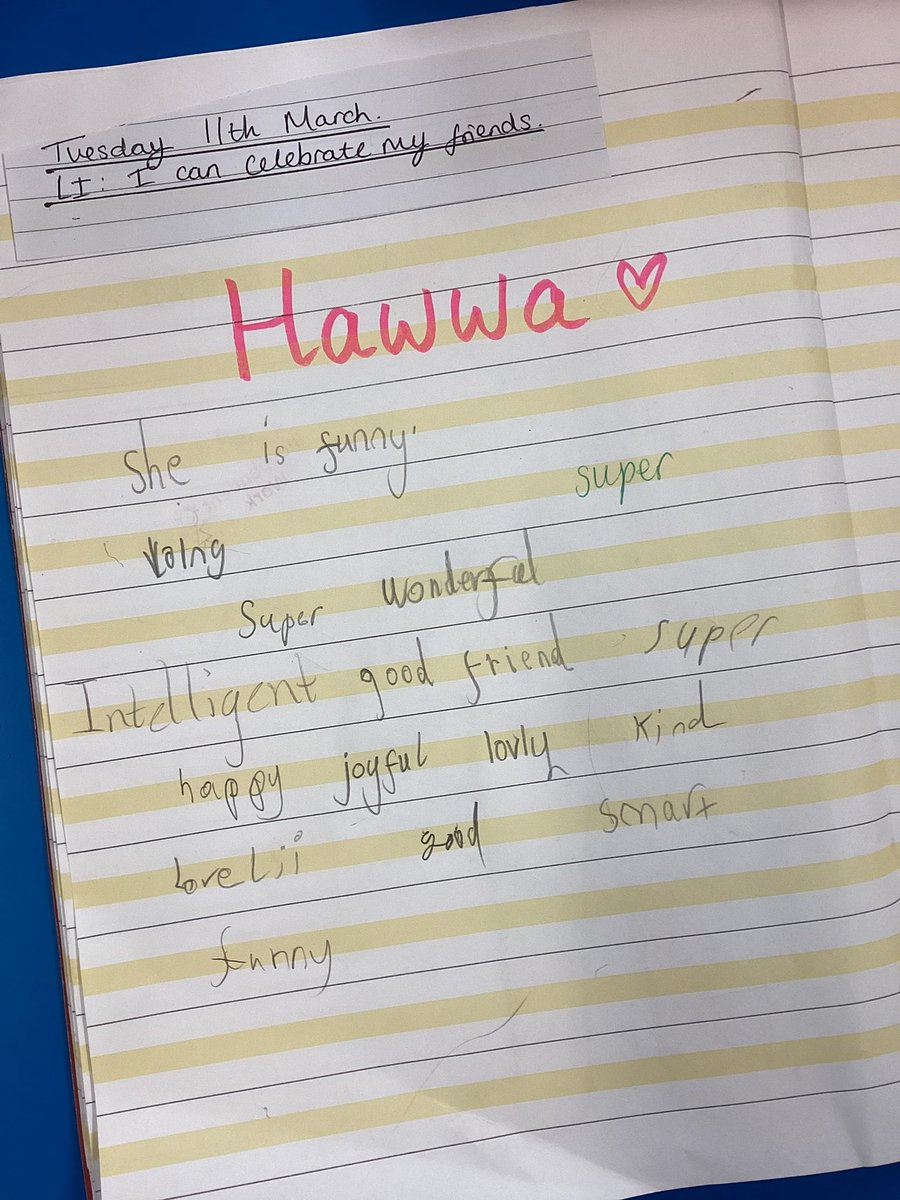 Tuesday 11th March.
LI: I can celebrate my friends.
Hawwa ♡
She is funny.
super
Super wonderful
Intelligent good friend super
happy joyful lovly kind
loveLii good smart
funny